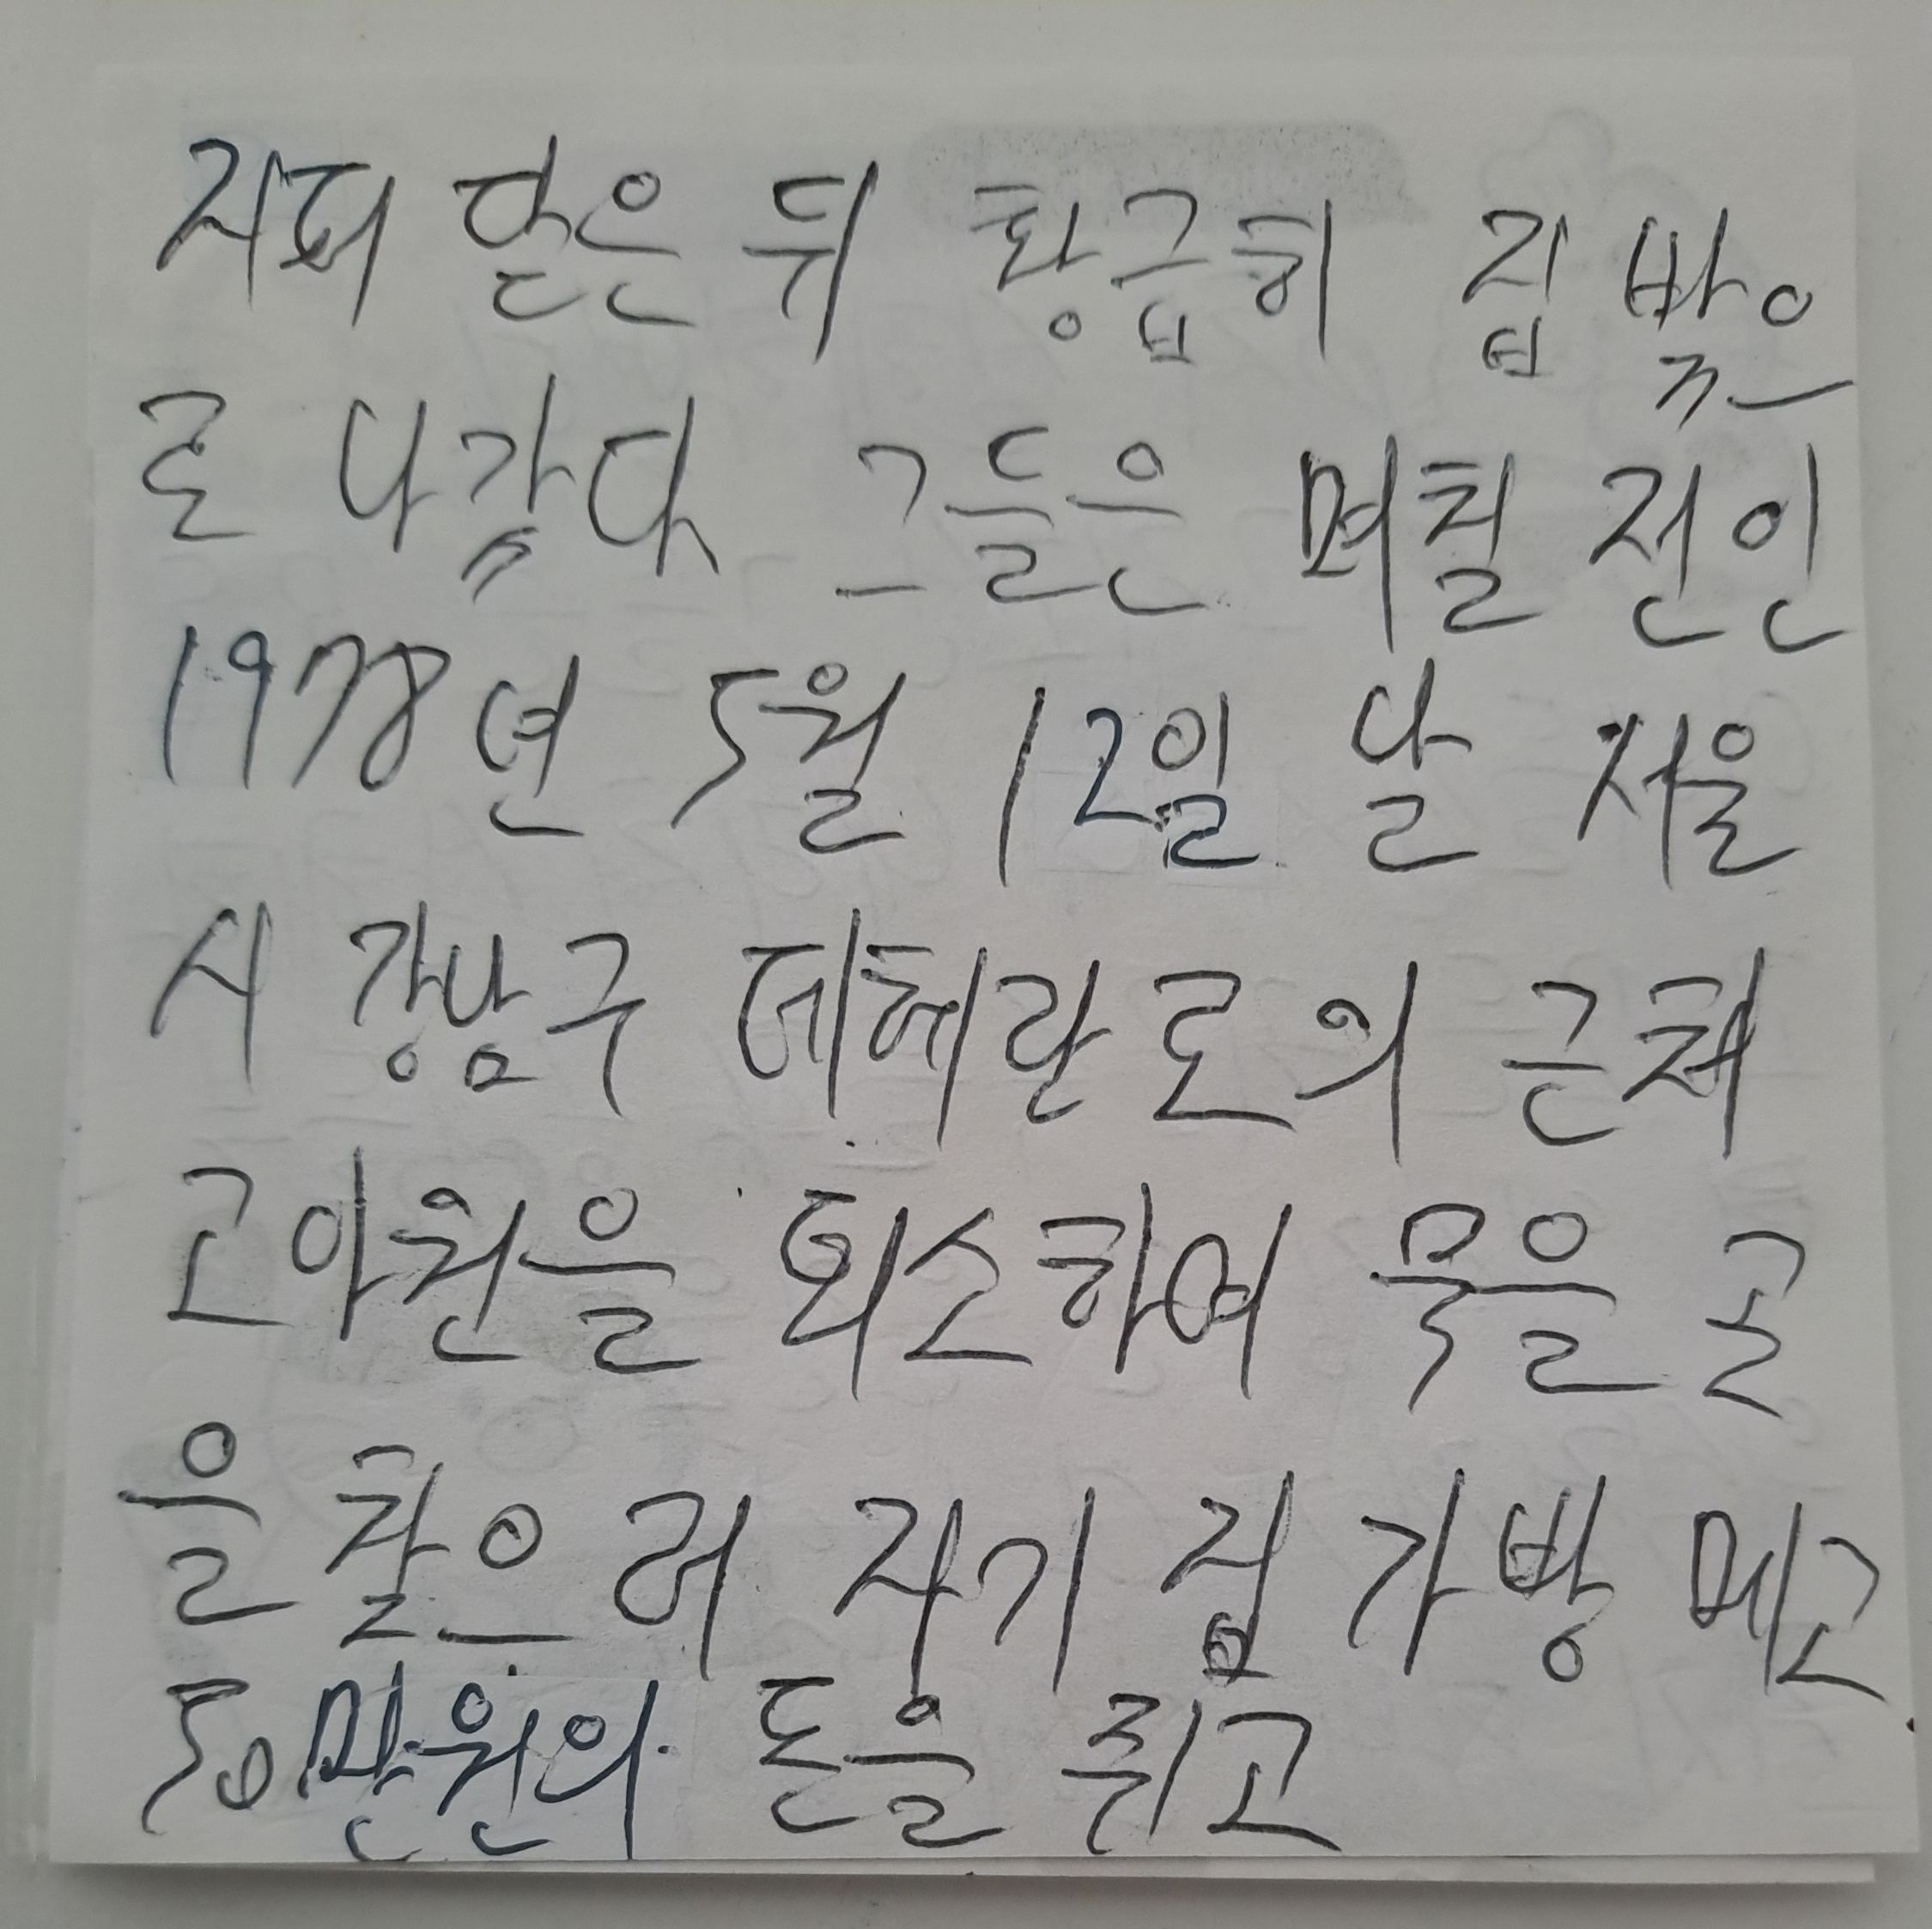 지퍼 닫은 뒤 황급히 집 밖으
로 나갔다 그들은 며칠 전인
1978년 5월 12일 날 서울
시 강남구 테헤란로의 근처
고아원을 퇴소하여 묵을 곳
을 찾으러 자기 짐 가방 메고
50만원의 돈을 쥐고